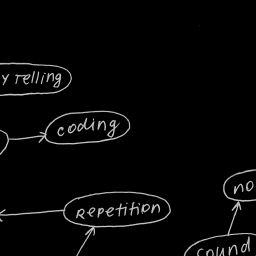 y telling
coding
no
Repetition
sound